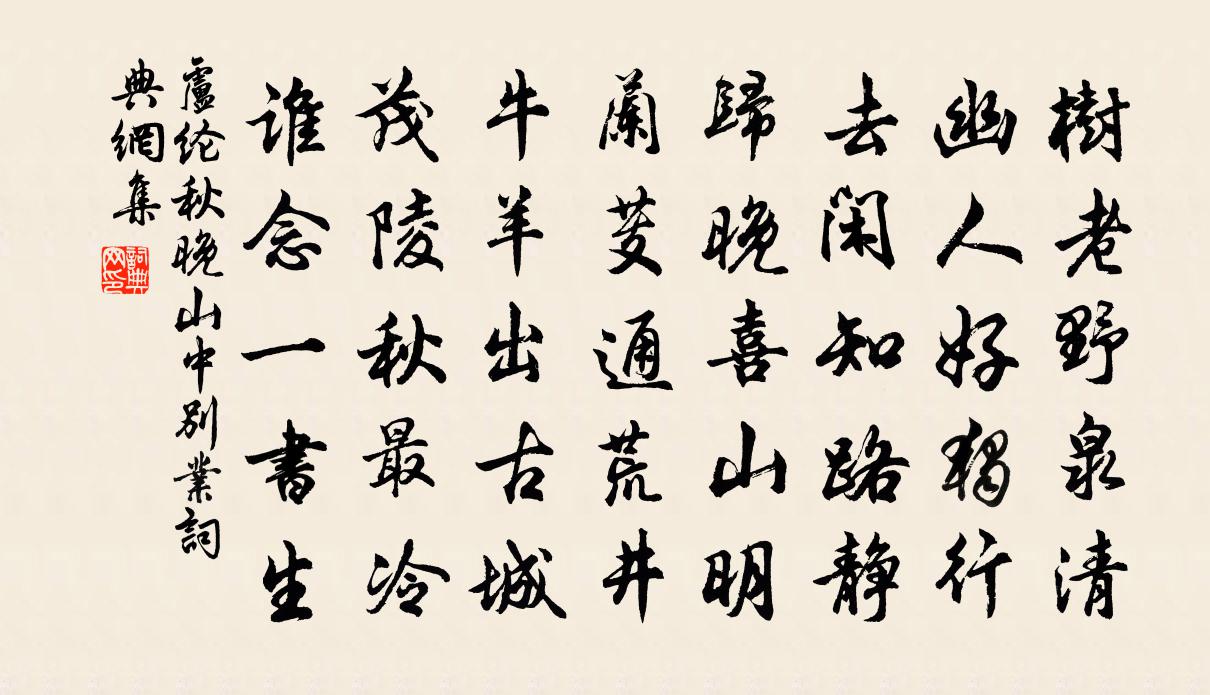 樹老野泉清
幽人好獨行
去閑知路靜
歸晚喜山明
蘭芰通荒井
牛羊出古城
茂陵秋最冷
誰念一書生
盧纶秋晚山中別業詞
典網集
詞典網印